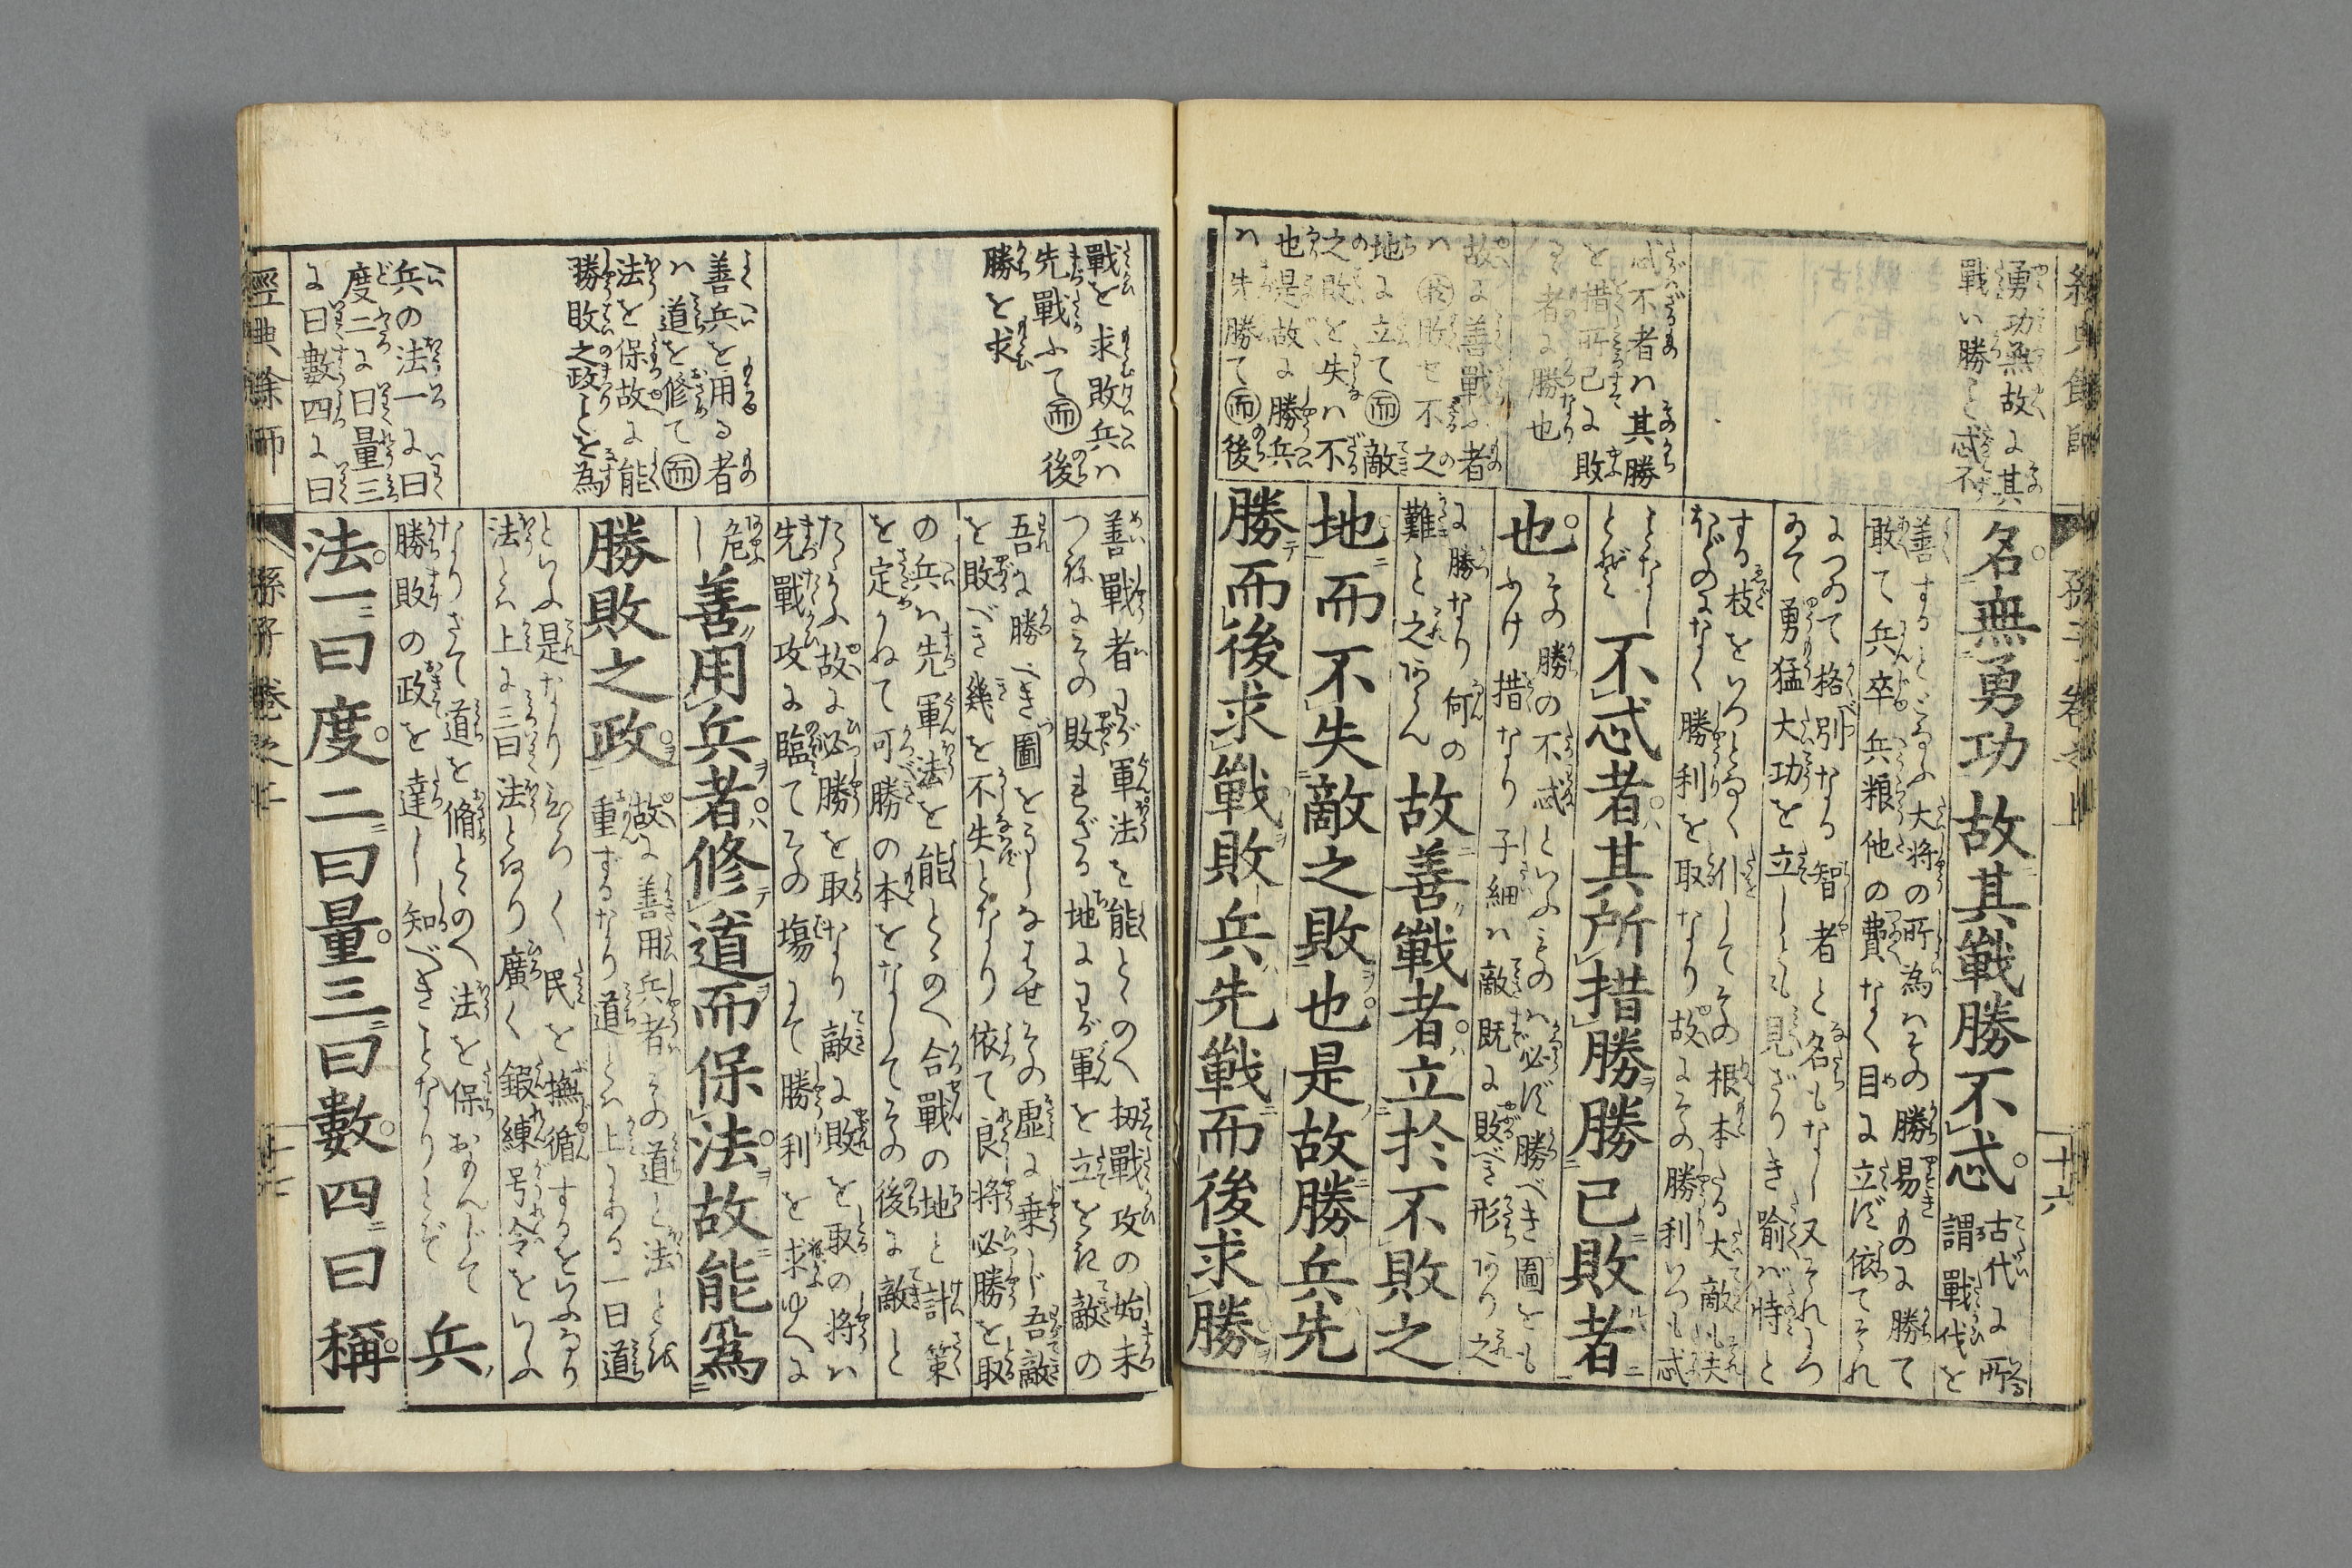 經典餘師
孫子 卷之上
十六
勇功無故に其
戰い勝こと忒不
忒不者ハ其勝
を措所已に敗
る者に勝也
故に善戰ふ者
ハ㊀敗せ不之
地に立て㊀敵
之敗を失ハ不
也是故に勝兵
ハ先勝て㊀後
名無勇功故其戰勝不忒
古代に所
謂戰代を
善するとふ大将の所為ハその勝易ものに勝て
敢て兵卒兵粮他の費なく目に立ず依てそれ
につゐて格別なる智者と名もなし又それにつ
ゐて勇猛大功を立しとも見ざりき喩バ時と
する枝をいろとなく してその根本たる大敵も夫
なく勝利を取なり故にその勝利いつも忒
ことなし
とぞ
不忒者其所措勝勝已敗者
也
その勝の不忒といふものハ必ず勝べき圖をも
ふけ措なり子細ハ敵既に敗べき形あり之
に勝なり何の
難こと之あらん
故善戰者立於不敗之
地而不失敵之敗也是故勝兵先
勝而後求戰敗兵先戰而後求勝
戰を求敗兵ハ
先戰ふて㊀後
勝を求
善兵を用る者
ハ道を修て㊀
法を保故に能
勝敗之政ことを為
兵の法一に曰
度二に曰量三
に曰數四に曰
善戰者ハ軍法を能とゝのへ扨戰攻の始末
つねにその敗まざる地にハ軍を立をき敵の
吾に勝べき圖をうしなはせその虚に乗じ吾敵
を敗べき幾を不失となり依て良将必勝を取
の兵ハ先軍法を能とゝのへ合戰の地と計策
を定かねて可勝の本をなしてその後に敵と
たゝかふ故に必勝を取なり敵に敗を取の将ハ
先戰攻に臨てその場にて勝利を求ゆへに
危
し
善用兵者修道而保法故能爲
勝敗之政
故に善用兵者その道と法とを
重ずるなり道とハ上にある一曰道
といふ是なりひろく民を撫循するをいふなり
法とハ上に三曰法とあり廣く鍜練号令をいふ
なりさて道を脩とゝのへ法を保おもんじて
勝敗の政を達し知べきことなりとぞ
兵
法一曰度二曰量三曰數四曰稱
經典餘師
孫子 卷之上
十七